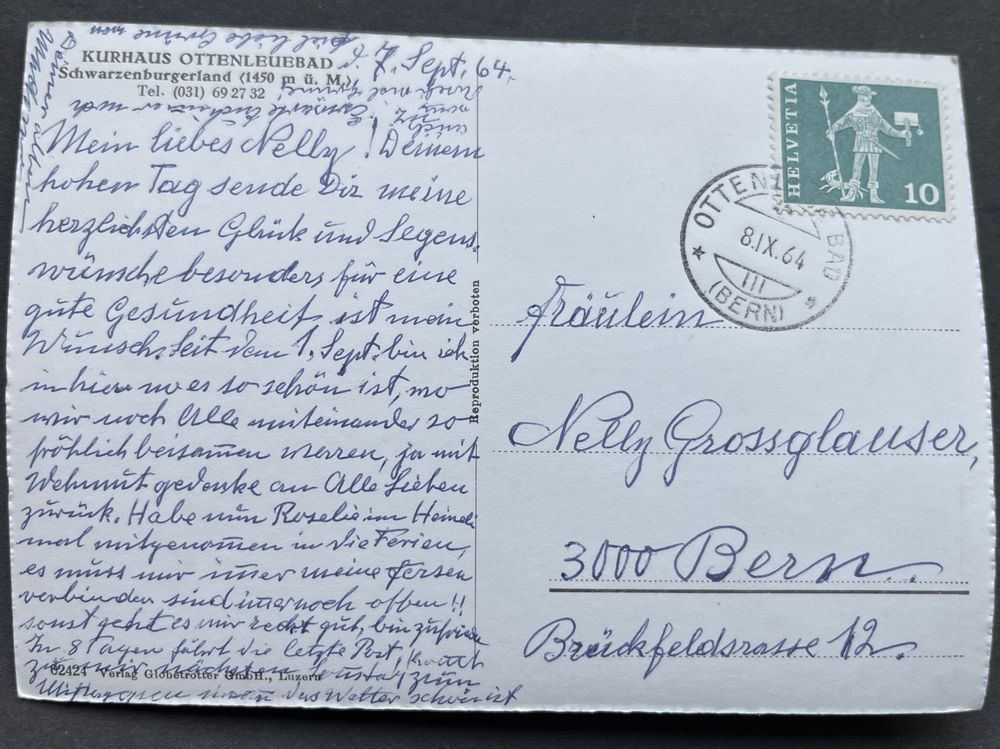 KURHAUS OTTENLEUEBAD
Schwarzenburgerland (1450 m ü. M.)
Tel. (031) 69 27 32
d. 7. Sept. 64.
Mein liebes Nelly! Deinem
hohen Tag sende Dir meine
herzlichsten Glück und Segens-
wünsche besonders für eine
gute Gesundheit ist mein
Wunsch. Seit dem 1. Sept. bin ich
in hier wo es so schön ist, wo
wir noch Alle miteinander so
fröhlich beisam̄en waren, ja mit
Wehmut gedenke an Alle Lieben
zurück. Habe nun Roselie im
mal mitgenom̄en in die Ferien,
es muss mir im̄er meine Fersen
verbinden sind im̄er noch offen!!
sonst geht es mir recht gut, bin zufrieden
In 8 Tagen fährt die letzte Post,
zu mir nächsten zum
das Wetter schön ist
Deine
62424 Verlag Globetrotter GmbH., Luzern
Reproduktion verboten
HELVETIA
10
OTTENLEUEBAD
8.IX.64
III
(BERN)
Fräulein
Nelly Grossglauser,
3000 Bern.
Brückfeldsrasse 12.